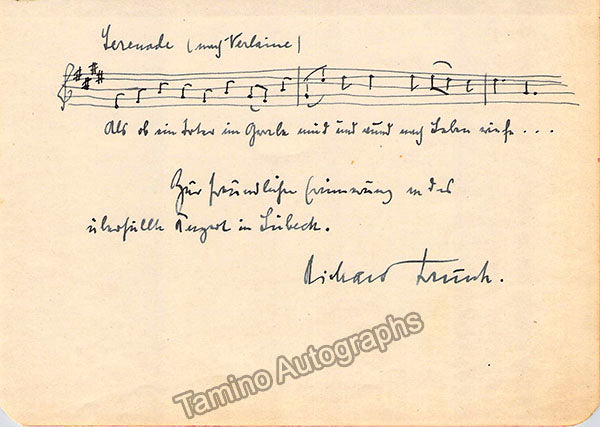 Serenade (nach Verlaine)
Als ob ein Toter im Grabe müd und wund nach Leben riefe ...
Zur freundlichen Erinnerung an das
überfüllte Konzert in Lübeck.
Richard Trunk.
Tamino Autographs